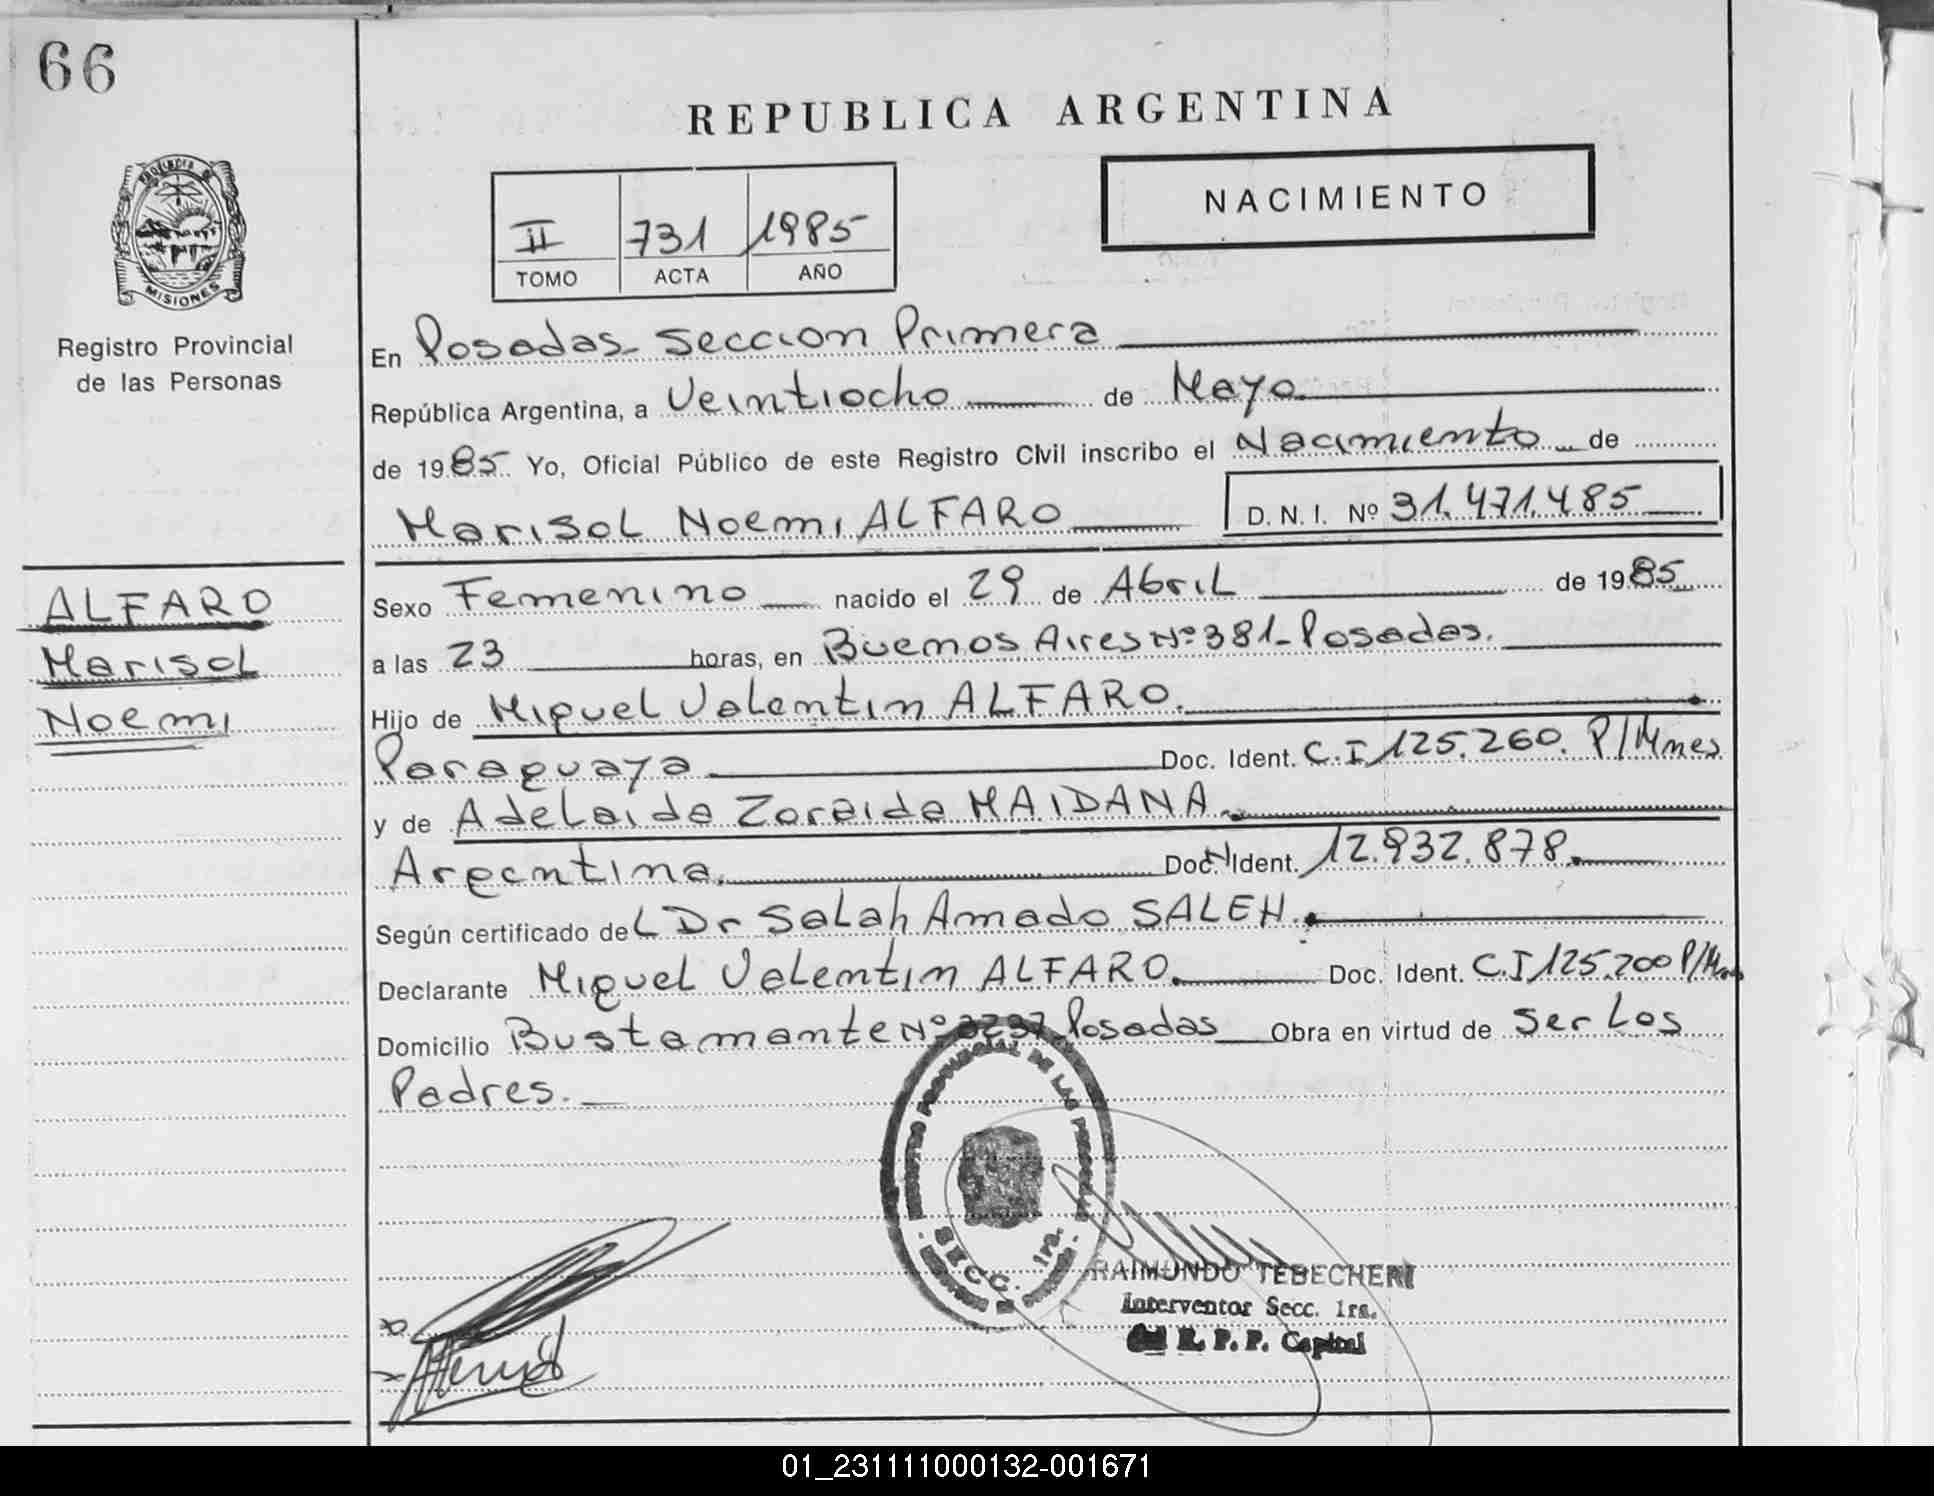 66
REPUBLICA ARGENTINA
NACIMIENTO
II 731 1985
TOMO ACTA AÑO
MISIONES
Registro Provincial
de las Personas
En Posadas. Seccion Primera
República Argentina, a Veintiocho de Mayo.
de 1985. Yo, Oficial Público de este Registro Civil inscribo el Nacimiento de
Marisol Noemi ALFARO D. N. I. Nº 31.471.485
ALFARO
Marisol
Noemi
Sexo Femenino nacido el 29 de Abril de 1985
a las 23 horas, en Buenos Aires Nº 381- Posadas.
Hijo de Miguel Valentin ALFARO.
Paraguaya Doc. Ident. C.I 125.260. P/Mnes
y de Adelaida Zoraida MAIDANA.
Argentina. Doc. Ident. 12.932.878.
Según certificado del Dr Salah Amado SALEH.
Declarante Miguel Valentin ALFARO. Doc. Ident. C.I 125.200 P/Mnes
Domicilio Bustamante Nº Posadas Obra en virtud de Ser Los
Padres.
REGISTRO PROVINCIAL DE LAS PERSONAS
SECC. 1ra.
RAIMUNDO TEBECHERI
Interventor Secc. 1ra.
R. P. P. Capital
01_231111000132-001671